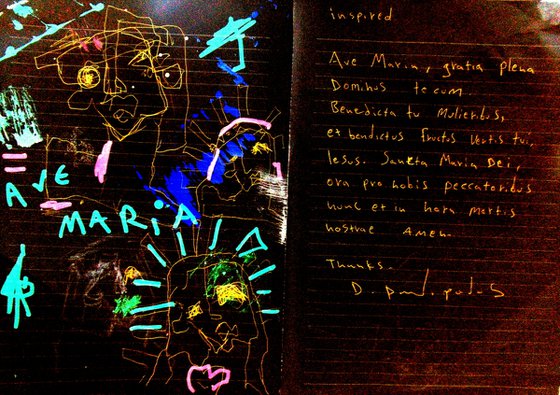 AVE
MARIA
inspired
Ave Maria, gratia plena
Dominus tecum.
Benedicta tu Mulieribus,
et bendictus fructus Ventis tui,
Iesus. Sancta Maria Dei,
ora pro nobis peccatoribus
nunc et in hora mortis
nostrae AMEN.
Thanks.